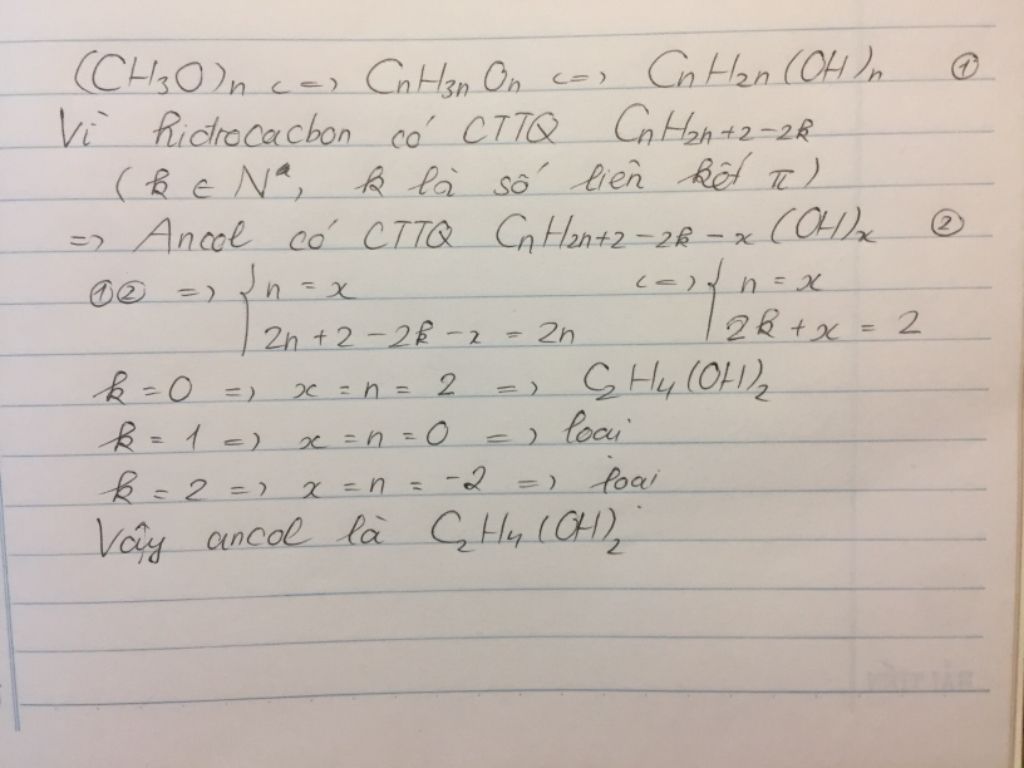 (CH3O)n <=> CnH3nOn <=> CnH2n(OH)n ①
Vì hidrocacbon có CTTQ CnH2n+2-2k
(k ∈ N*, k là số liên kết π)
=> Ancol có CTTQ CnH2n+2-2k-x(OH)x ②
①② => { n = x <=> { n = x
2n+2-2k-x = 2n 2k+x = 2
k = 0 => x = n = 2 => C2H4(OH)2
k = 1 => x = n = 0 => loại
k = 2 => x = n = -2 => loại
Vậy ancol là C2H4(OH)2